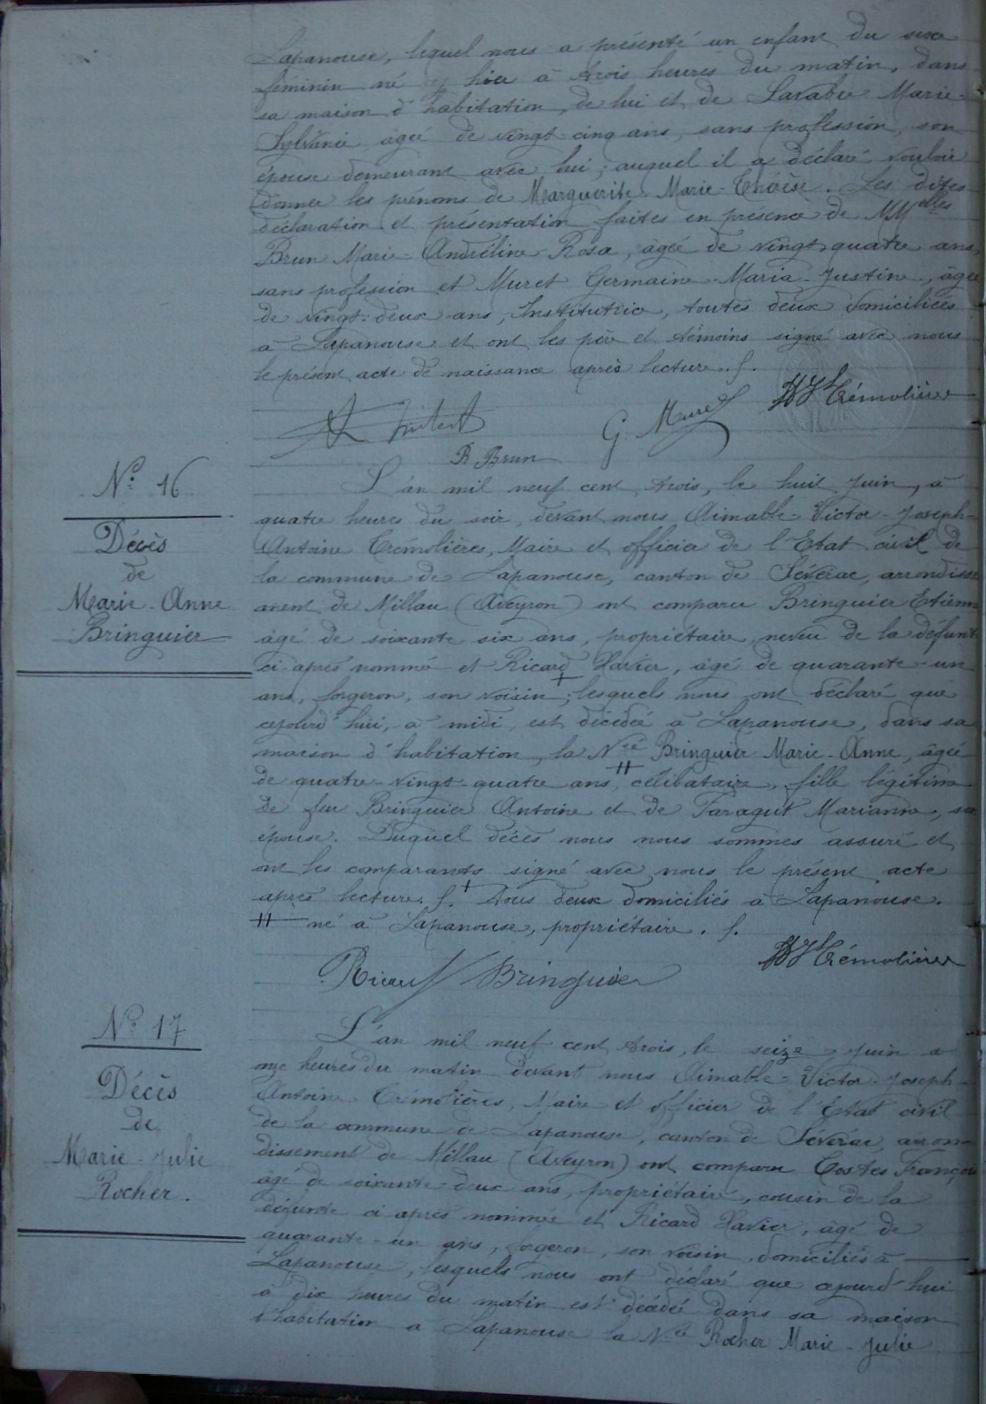 Lapanouse, lequel nous a présenté un enfant du sexe
féminin né hier à trois heures du matin, dans
sa maison d'habitation, de lui et de Laxabie Marie-
Sylvanie âgée de vingt-cinq ans, sans profession, son
épouse demeurant avec lui; auquel il a déclaré vouloir
donner les prénoms de Marguerite Marie-Thérèse. Les dites
déclaration et présentation faites en présence de MMelles
Brun Marie Andréline Rosa, âgée de vingt quatre ans,
sans profession et Muret Germaine Maria Justine, âgée
de vingt-deux ans, Institutrice, toutes deux domiciliées
à Lapanouse et ont les père et témoins signé avec nous
le présent acte de naissance après lecture. f.
G. Muret
Trémolières
R. Brun
N° 16
Décès
de
Marie-Anne
Bringuier
L'an mil neuf cent trois, le huit Juin, à
quatre heures du soir, devant nous Aimable-Victor-Joseph-
Antoine Trémolières, Maire et officier de l'Etat civil de
la commune de Lapanouse, canton de Séverac, arrondisse
ment de Millau (Aveyron) ont comparu Bringuier Etienne
âgé de soixante six ans, propriétaire, neveu de la défunte
ci-après nommée et Ricard Xavier, âgé de quarante-un
ans, forgeron, son voisin; lesquels nous ont déclaré que
cejourd'hui, à midi, est décédée à Lapanouse, dans sa
maison d'habitation, la Née Bringuier Marie-Anne, âgée
de quatre-vingt-quatre ans, célibataire, fille légitime
de feu Bringuier Antoine et de Faragut Marianne, son
épouse. Duquel décès nous nous sommes assuré et
ont les comparants signé avec nous le présent acte
après lecture. f. + tous deux domiciliés à Lapanouse.
++ né à Lapanouse, propriétaire. f.
Ricard Bringuier
Trémolières
N° 17
Décès
de
Marie-Julie
Rocher.
L'an mil neuf cent trois, le seize Juin à
onze heures du matin devant nous Aimable-Victor-Joseph-
Antoine Trémolières, Maire et officier de l'Etat civil
de la commune de Lapanouse, canton de Séverac, arron-
dissement de Millau (Aveyron) ont comparu Costes François
âgé de soixante-deux ans, propriétaire, cousin de la
défunte ci après nommée et Ricard Xavier, âgé de
quarante-un ans, forgeron, son voisin, domiciliés à
Lapanouse, lesquels nous ont déclaré que cejourd'hui
à dix heures du matin est décédée dans sa maison
d'habitation à Lapanouse la Née Rocher Marie-Julie